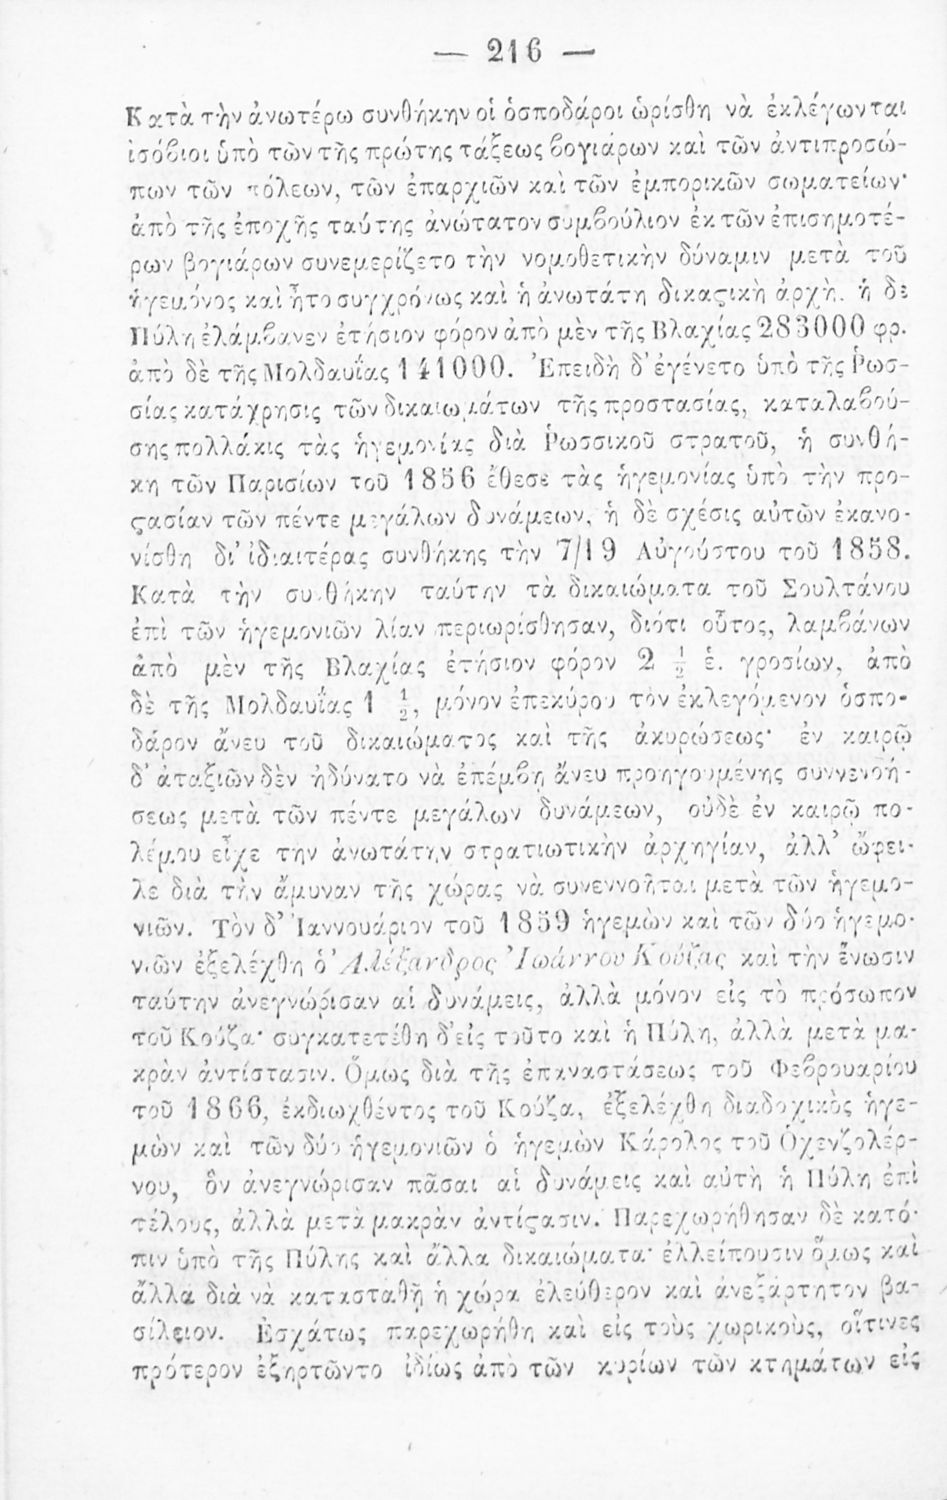 — 216 —
Κατὰ τὴν ἀνωτέρω συνθήκην οἱ ὁσποδάροι ὡρίσθη νὰ ἐκλέγωνται
ἰσόβιοι ὑπὸ τῶν τῆς πρώτης τάξεως βογιάρων καὶ τῶν ἀντιπροσώ-
πων τῶν πόλεων, τῶν ἐπαρχιῶν καὶ τῶν ἐμπορικῶν σωματείων·
ἀπὸ τῆς ἐποχῆς ταύτης ἀνώτατον συμβούλιον ἐκ τῶν ἐπισημοτέ-
ρων βογιάρων συνεμερίζετο τὴν νομοθετικὴν δύναμιν μετὰ τοῦ
ἡγεμόνος καὶ ἦτο συγχρόνως καὶ ἡ ἀνωτάτη δικαϛικὴ ἀρχὴ. ἡ δὲ
Πύλη ἐλάμβανεν ἐτήσιον φόρον ἀπὸ μὲν τῆς Βλαχίας 283000 φρ.
ἀπὸ δὲ τῆς Μολδαυΐας 141000. Ἐπειδὴ δ' ἐγένετο ὑπὸ τῆς Ῥωσ-
σίας κατάχρησις τῶν δικαιωμάτων τῆς προστασίας, καταλαβού-
σης πολλάκις τὰς ἡγεμονίας διὰ Ῥωσσικοῦ στρατοῦ, ἡ συνθή-
κη τῶν Παρισίων τοῦ 1856 ἔθεσε τὰς ἡγεμονίας ὑπὸ τὴν προ-
ϛασίαν τῶν πέντε μεγάλων δυνάμεων, ἡ δὲ σχέσις αὐτῶν ἐκανο-
νίσθη δι' ἰδιαιτέρας συνθήκης τὴν 7/19 Αὐγούστου τοῦ 1858.
Κατὰ τὴν συνθήκην ταύτην τὰ δικαιώματα τοῦ Σουλτάνου
ἐπὶ τῶν ἡγεμονιῶν λίαν περιωρίσθησαν, διότι οὗτος, λαμβάνων
ἀπὸ μὲν τῆς Βλαχίας ἐτήσιον φόρον 2 ½ ἑ. γροσίων, ἀπὸ
δὲ τῆς Μολδαυΐας 1 ½, μόνον ἐπεκύρου τὸν ἐκλεγόμενον ὁσπο-
δάρον ἄνευ τοῦ δικαιώματος καὶ τῆς ἀκυρώσεως· ἐν καιρῷ
δ' ἀταξιῶν δὲν ἠδύνατο νὰ ἐπέμβῃ ἄνευ προηγουμένης συννενοή-
σεως μετὰ τῶν πέντε μεγάλων δυνάμεων, οὐδὲ ἐν καιρῷ πο-
λέμου εἶχε τὴν ἀνωτάτην στρατιωτικὴν ἀρχηγίαν, ἀλλ' ὤφει-
λε διὰ τὴν ἄμυναν τῆς χώρας νὰ συνεννοῆται μετὰ τῶν ἡγεμο-
νιῶν. Τὸν δ' Ἰαννουάριον τοῦ 1859 ἡγεμὼν καὶ τῶν δύο ἡγεμο-
νιῶν ἐξελέχθη ὁ Ἀλέξανδρος Ἰωάννου Κούζας καὶ τὴν ἕνωσιν
ταύτην ἀνεγνώρισαν αἱ δυνάμεις, ἀλλὰ μόνον εἰς τὸ πρόσωπον
τοῦ Κούζα· συγκατετέθη δ' εἰς τοῦτο καὶ ἡ Πύλη, ἀλλὰ μετὰ μα-
κρὰν ἀντίστασιν. Ὅμως διὰ τῆς ἐπαναστάσεως τοῦ Φεβρουαρίου
τοῦ 1866, ἐκδιωχθέντος τοῦ Κούζα, ἐξελέχθη διαδοχικὸς ἡγε-
μὼν καὶ τῶν δύο ἡγεμονιῶν ὁ ἡγεμὼν Κάρολος τοῦ Ὁχενζολέρ-
νου, ὃν ἀνεγνώρισαν πᾶσαι αἱ δυνάμεις καὶ αὐτὴ ἡ Πύλη ἐπὶ
τέλους, ἀλλὰ μετὰ μακρὰν ἀντίϛασιν. Παρεχωρήθησαν δὲ κατό-
πιν ὑπὸ τῆς Πύλης καὶ ἄλλα δικαιώματα· ἐλλείπουσιν ὅμως καὶ
ἄλλα διὰ νὰ κατασταθῇ ἡ χώρα ἐλεύθερον καὶ ἀνεξάρτητον βα-
σίλειον. Ἐσχάτως παρεχωρήθη καὶ εἰς τοὺς χωρικοὺς, οἵτινες
πρότερον ἐξηρτῶντο ἰδίως ἀπὸ τῶν κυρίων τῶν κτημάτων εἰς